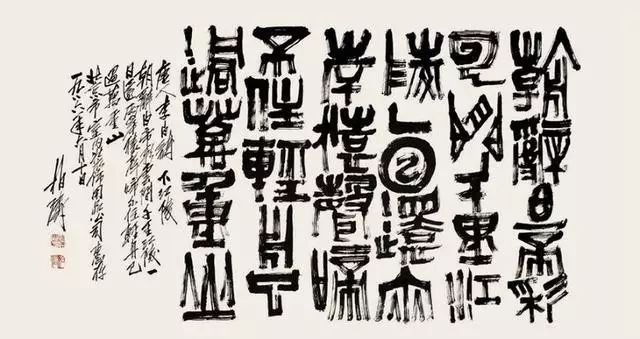 朝辭白帝彩
云間千里江
陵一日還兩
岸猿聲啼
不住輕舟已
過萬重山
唐人李白詩 下江陵
朝辭白帝彩雲間千里江陵一
日還兩岸猿聲啼不住輕舟已
過萬重山
一九八六年六月十日